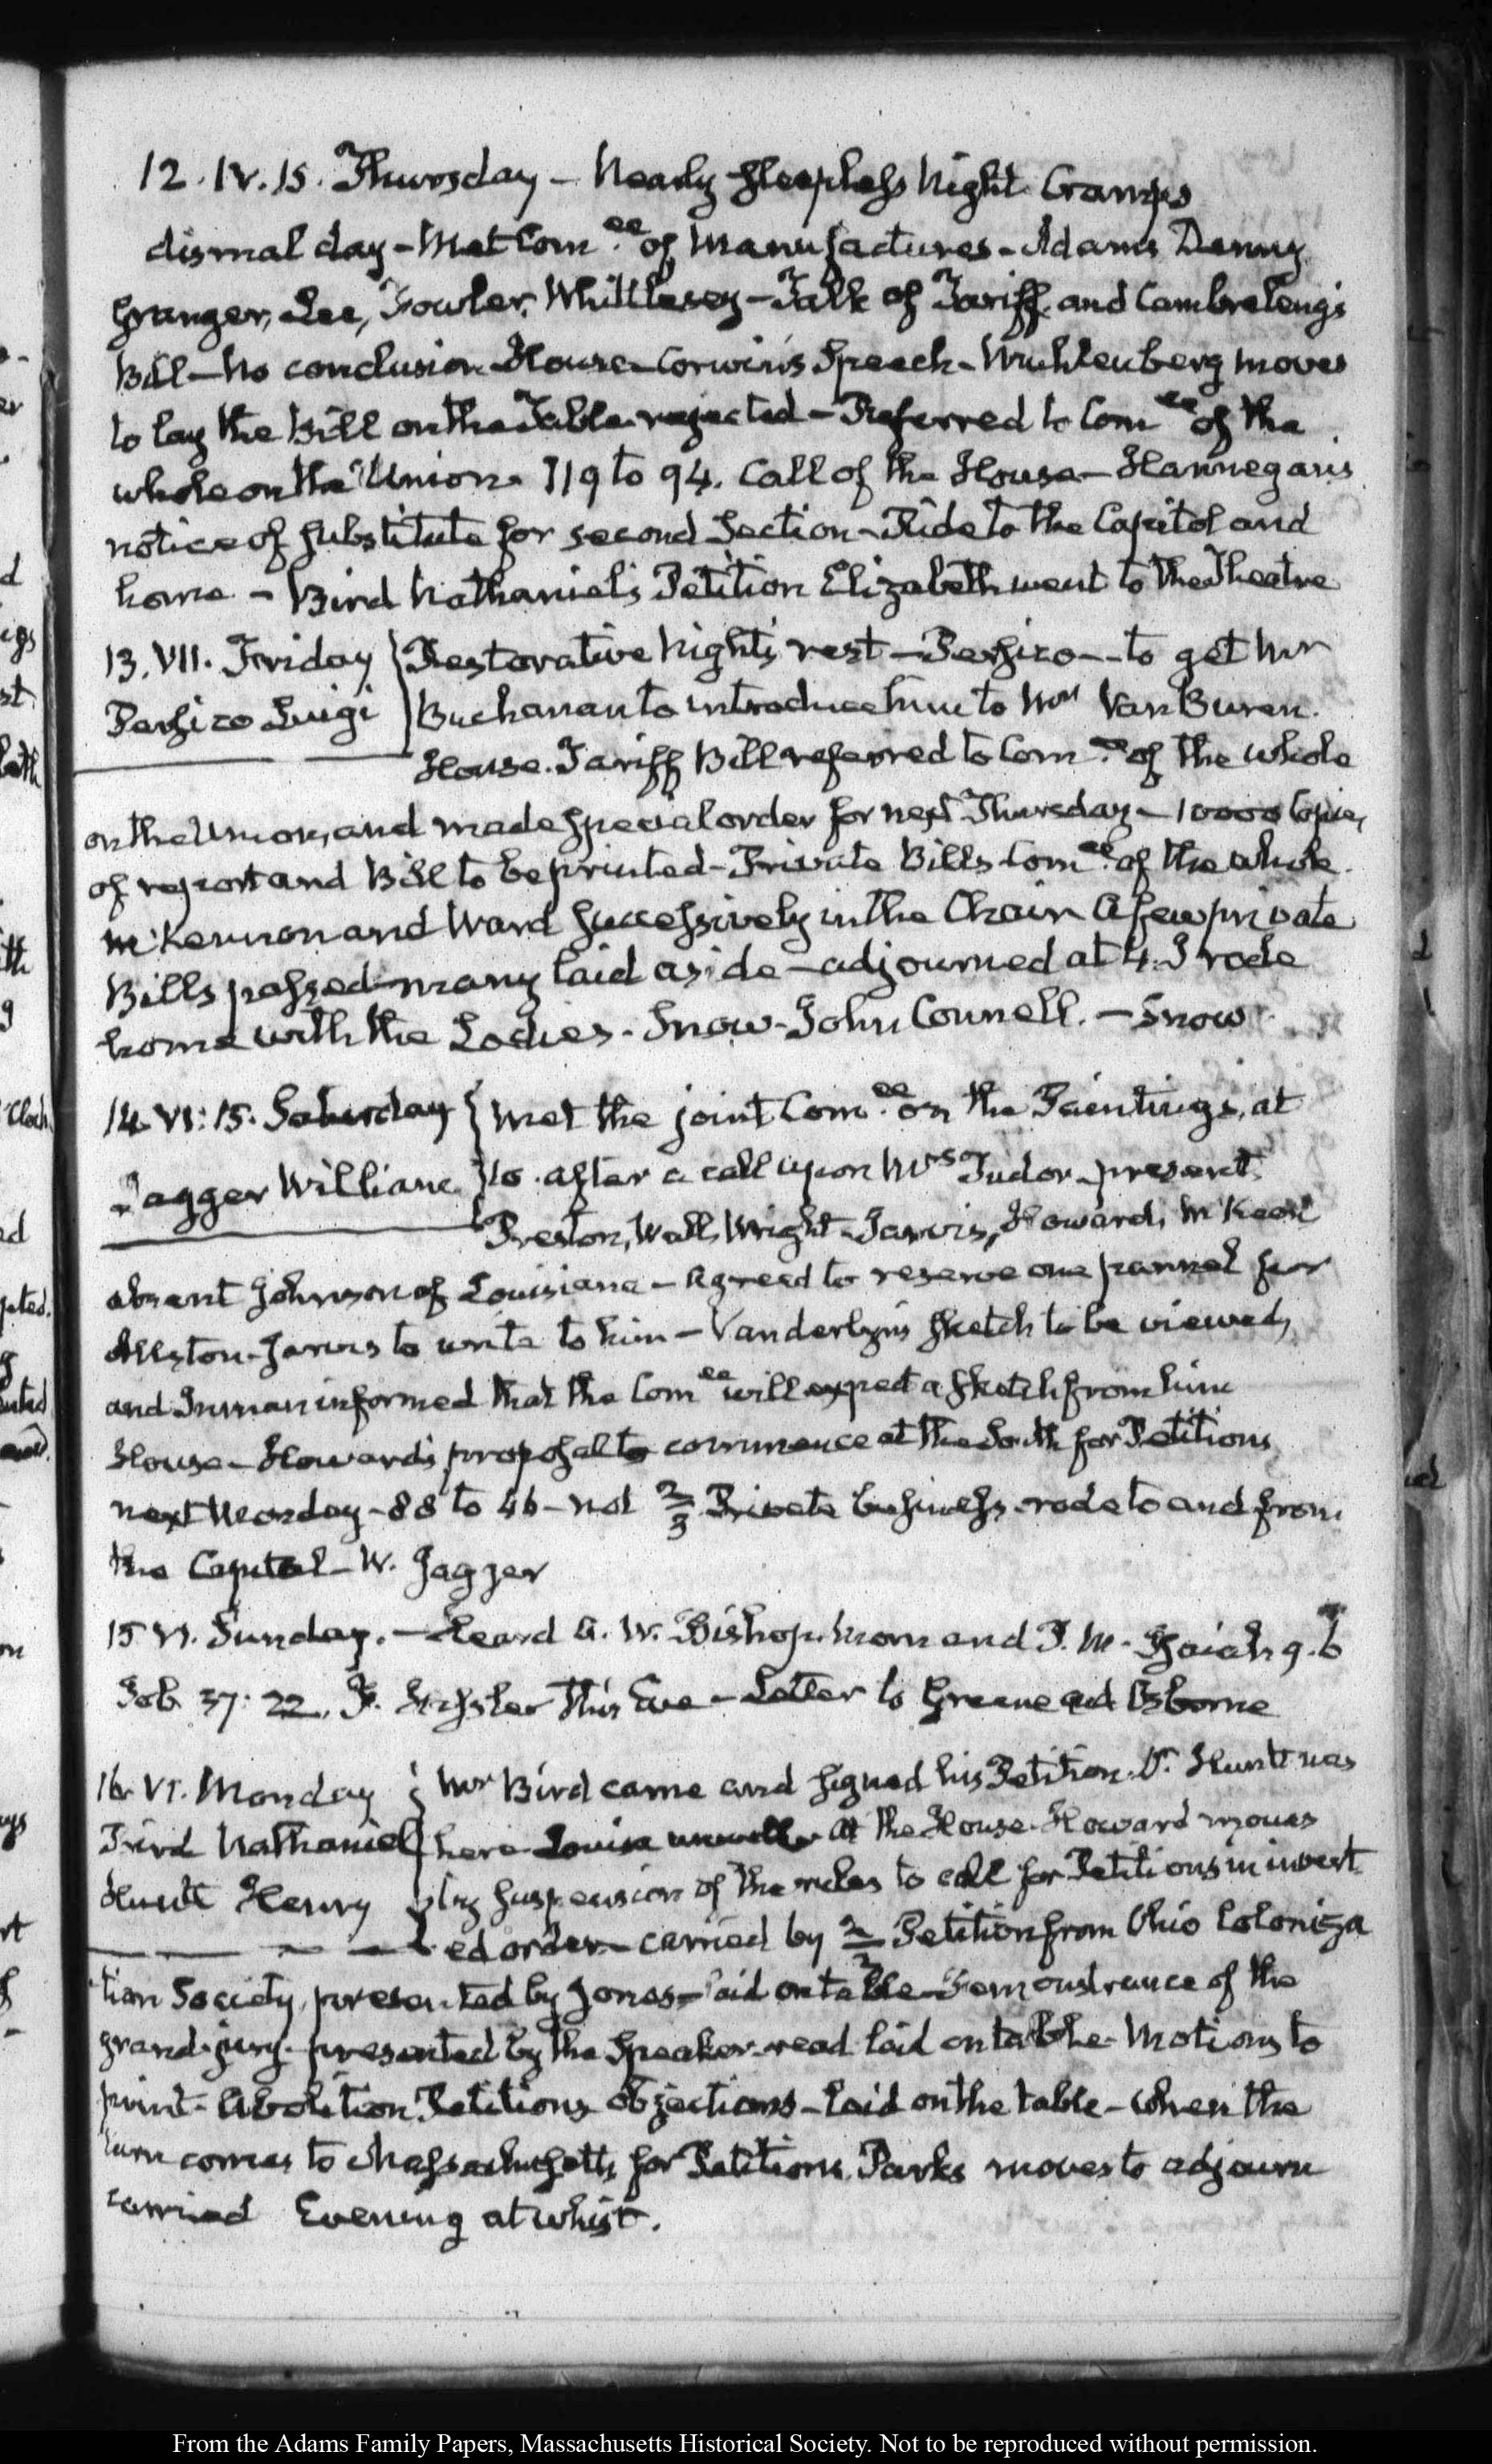 12. IV. 15. Thursday – Nearly sleepless Night. Cramps
dismal day – Met Com.ee of Manufactures – Adams Denny
Granger, Lee, Fowler, Whittlesey – Talk of Tariff, and Cambreleng's
Bill – No conclusion – House – Corwin's Speech – Muhlenberg moves
to lay the Bill on the Table – rejected – Referred to Comee of the
whole on the Union – 119 to 94. Call of the House – Hannegan's
notice of substitute for second Section – Ride to the Capitol and
home – Bird Nathaniel's Petition Elizabeth went to the Theatre
13. VII. Friday Restorative Night's rest – Persico – to get Mr
Persico Luigi Buchanan to introduce him to Mr Van Buren.
House. Tariff Bill referred to Com.ee of the whole
on the Union, and made special order for next Thursday – 10000 Copies
of report and Bill to be printed – Private Bills Comee of the whole.
McKennon and Ward successively in the Chair A few private
Bills passed – many laid aside – adjourned at 4. I rode
home with the Ladies – Snow – John Connell. – Snow
14. VI: 15. Saturday Met the joint Com.ee on the Paintings, at
Jagger William 10. after a call upon Mrs Tudor – present
Preston, Wall, Wright – Jarvis, Howard, McKeon
absent Johnson of Louisiana – Agreed to reserve one pannel for
Allston – Jarvis to write to him – Vanderlyn's sketch to be viewed,
and Inman informed that the Comee will expect a sketch from him
House – Howard's proposal to commence at the South for Petitions
next Monday – 88 to 46 – not 2/3 Private business – rode to and from
the Capitol – W. Jagger
15 VI. Sunday. – Heard G. W. Bishop. Morn and P. M – Isaiah 9. 6
Job 37: 22. F. Hassler this Eve – Letter to Greene and Osborne
16. VI. Monday Mr Bird came and signed his Petition. Dr. Huntt was
Bird Nathaniel here – Louisa unwell – At the House – Howard moves
Huntt Henry by suspension of the rules to call for Petitions in invert
ed order – carried by 2/3 Petition from Ohio Coloniza
tion Society, presented by Jones – laid on table – Remonstrance of the
grand-jury – presented by the Speaker – read laid on table – Motions to
print – Abolition Petitions objections – laid on the table – when the
turn comes to Massachusetts for Petitions Parks moves to adjourn
carried Evening at whist.
From the Adams Family Papers, Massachusetts Historical Society. Not to be reproduced without permission.